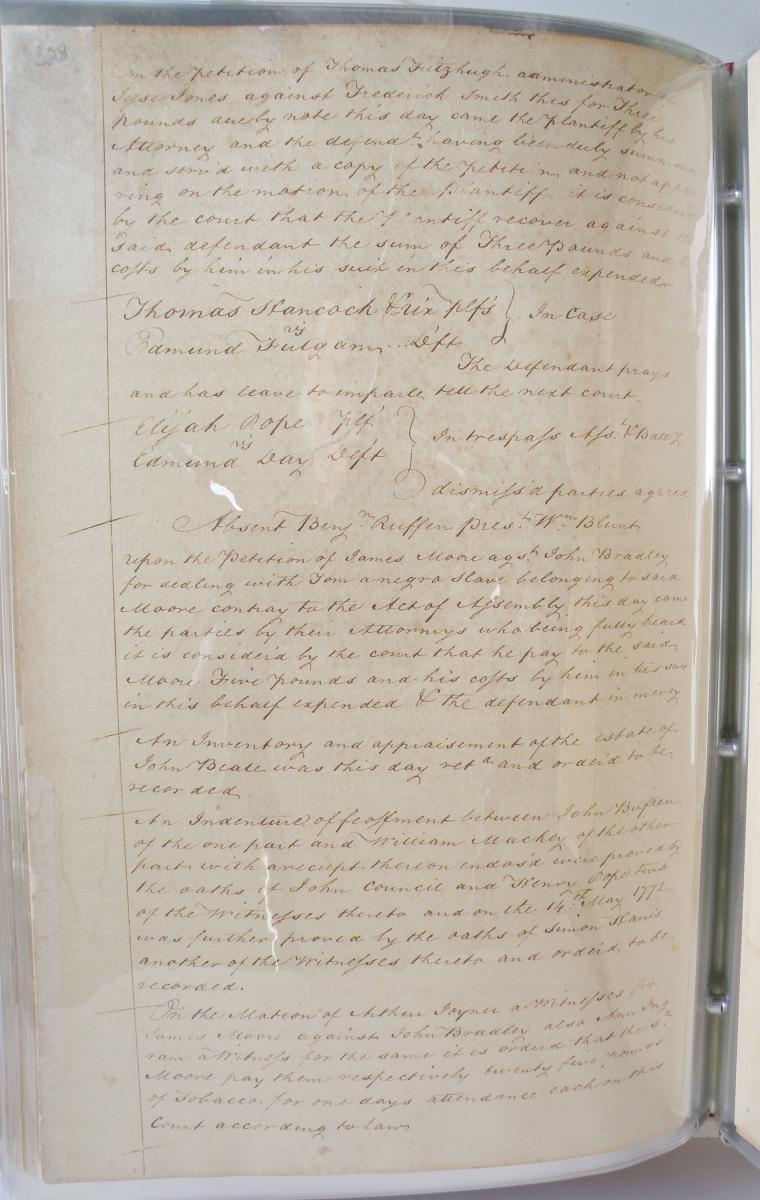 228
On the Petition of Thomas Fitzhugh administrator of
Jesse Jones against Frederick Smith this for Three
pounds due by note this day came the plantiff by his
Attorney and the defendt having been duly summon
and servd with a copy of the Petition and not appea
ring on the motion of the Plantiff it is consider
by the court that the Plantiff recover against the
said defendant the sum of Three Pounds and
costs by him in his suit in this behalf expended
Thomas Hancock &Uix plfs } In Case
vs
Edmund Fulgam .. Dft
The Defendant prays
and has leave to imparle tell the next court.
Elijah Pope Plf
vs
Edmund Day Deft } In trespass Asst & Batty
dismiss'd parties agreed
Absent Benjn Ruffen Prest Wm Blunt
upon the Petition of James Moore agst John Bradley
for dedling with Tom a negro slave belonging to said
Moore contray to the Act of Assembly this day came
the parties by their Attorneys who being fully heard
it is consider'd by the court that he pay to the said
Moore Five pounds and his costs by him in his suit
in this behalf expended & the defendant in mercy
An Inventory and appraisement of the estate of
John Beale was this day retd and order'd to be
recorded
An Indenture of feoffment between John Buffen
of the one part and William Mackey of the other
part with a reciept thereon endos'd were proved by
the oaths of John Council and Henry Pope two
of the Witnesses thereto and on the 14th May 1772
was further proved by the oaths of Simon Harris
another of the Witnesses thereto and order'd to be
recorded.
On the Motion of Arthur Joyner a Witnesses for
James Moore against John Bradley also Ann Ing
ram a Witness for the same it is order'd that the sd
Moore pay them respectively twenty five pounds
of Tobacco for one days attendance each on this
Court according to Law